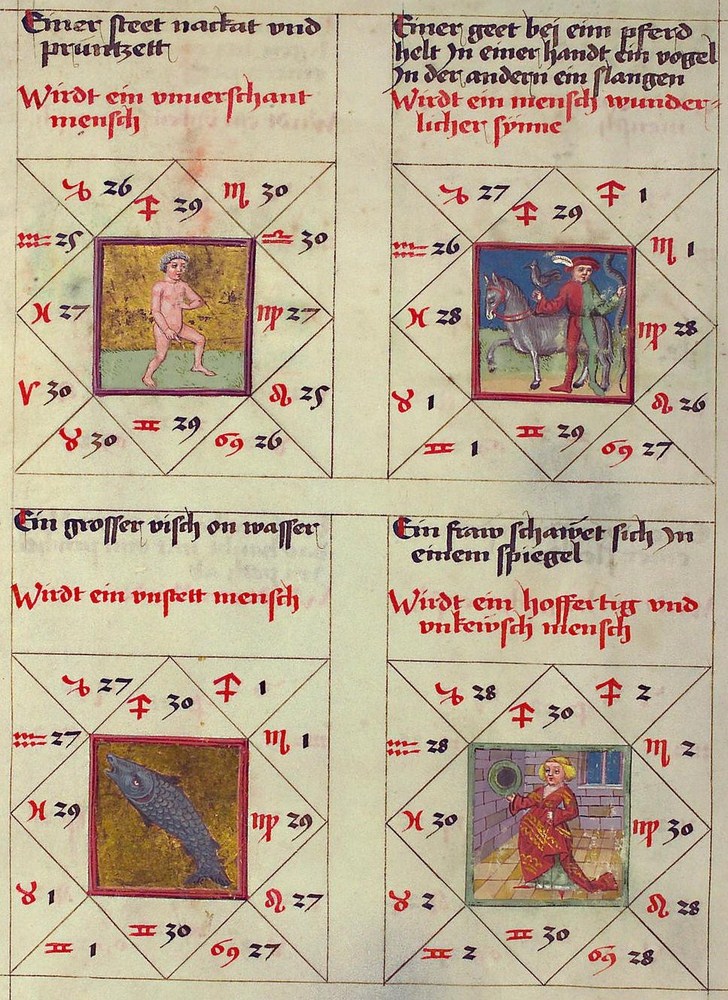 Einer steet nackat vnd
pruntzett
Wirdt ein vnuerschant
mensch
♑ 26 ♐ 29 ♏ 30
♒ 25 ♎ 30
♓ 27 ♍ 27
♈ 30 ♌ 25
♉ 30 ♊ 29 ♋ 26
Einer geet bei eim pferd
helt In einer handt ein vogel
In der andern ein slangen
Wirdt ein mensch wunder-
licher synne
♑ 27 ♐ 29 ♐ 1
♒ 26 ♏ 1
♓ 28 ♍ 28
♉ 1 ♌ 26
♊ 1 ♊ 29 ♋ 27
Ein grosser visch on wasser
Wirdt ein vnstett mensch
♑ 27 ♐ 30 ♐ 1
♒ 27 ♏ 1
♓ 29 ♍ 29
♉ 1 ♌ 27
♊ 1 ♊ 30 ♋ 27
Ein fraw schawet sich In
einem spiegel
Wirdt ein hoffertig vnd
vnkewsch mensch
♑ 28 ♐ 30 ♐ 2
♒ 28 ♏ 2
♓ 30 ♍ 30
♉ 2 ♌ 28
♊ 2 ♊ 30 ♋ 28